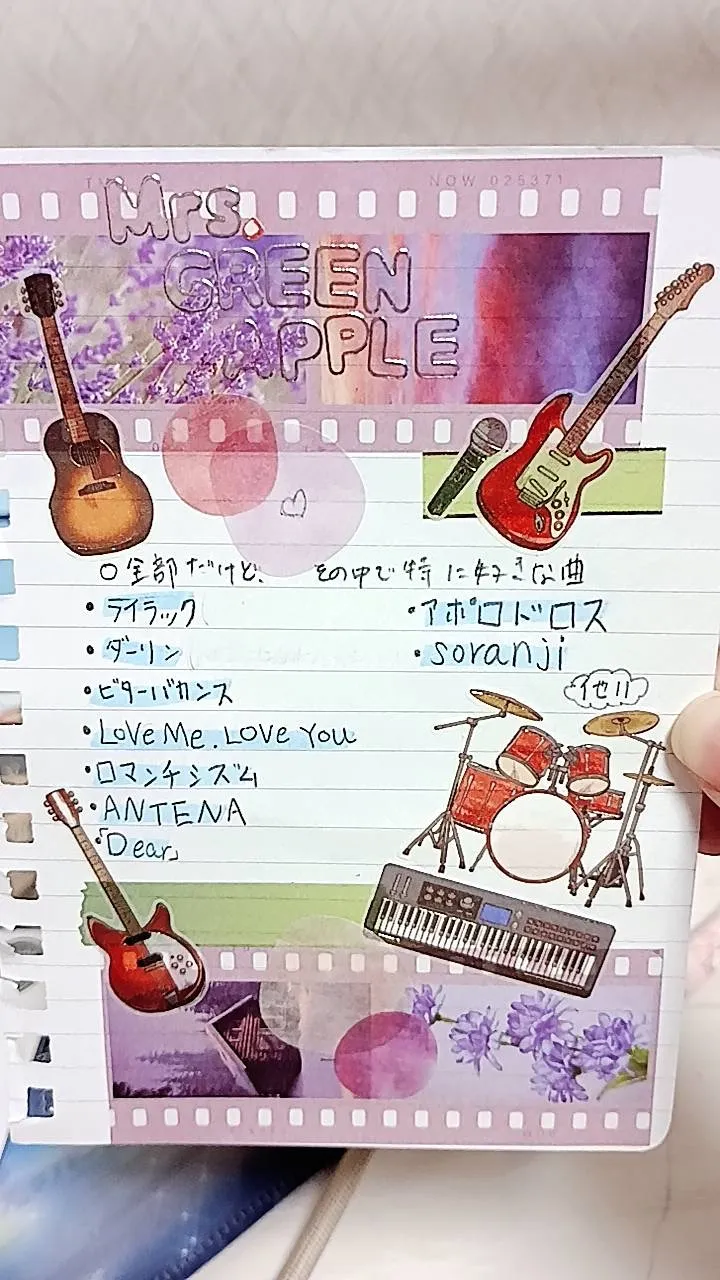 NOW 025371
Mrs.
GREEN
APPLE
○全部だけど、その中で特に好きな曲
・ライラック
・ダーリン
・ビターバカンス
・Love Me, Love You
・ロマンチシズム
・ANTENA
「Dear」
・アポロドロス
・soranji
他!!